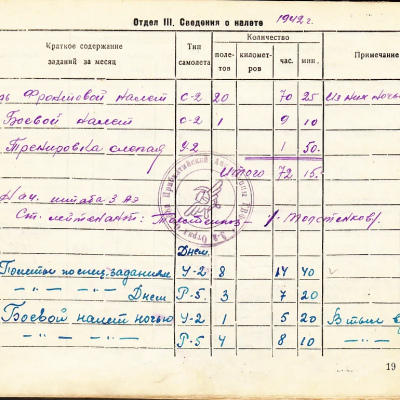 Отдел III. Сведения о налете 1942 г.
Краткое содержание заданий за месяц
Тип самолета
Количество
полетов
километров
час.
мин.
Примечание
Фронтовой налет С-2 20 70 25 Из них ночь
Боевой налет С-2 1 9 10
Тренировка слепая У-2 1 50
Итого 72 15
Нач. штаба 3 АЭ
Ст. лейтенант:
Днем.
Полеты по спец. заданиям У-2 8 14 40
—"— —"— Днем Р-5 3 7 20
Боевой налет ночью У-2 1 5 20 В тыл
—"— —"— Р-5 4 8 10 —"—
19